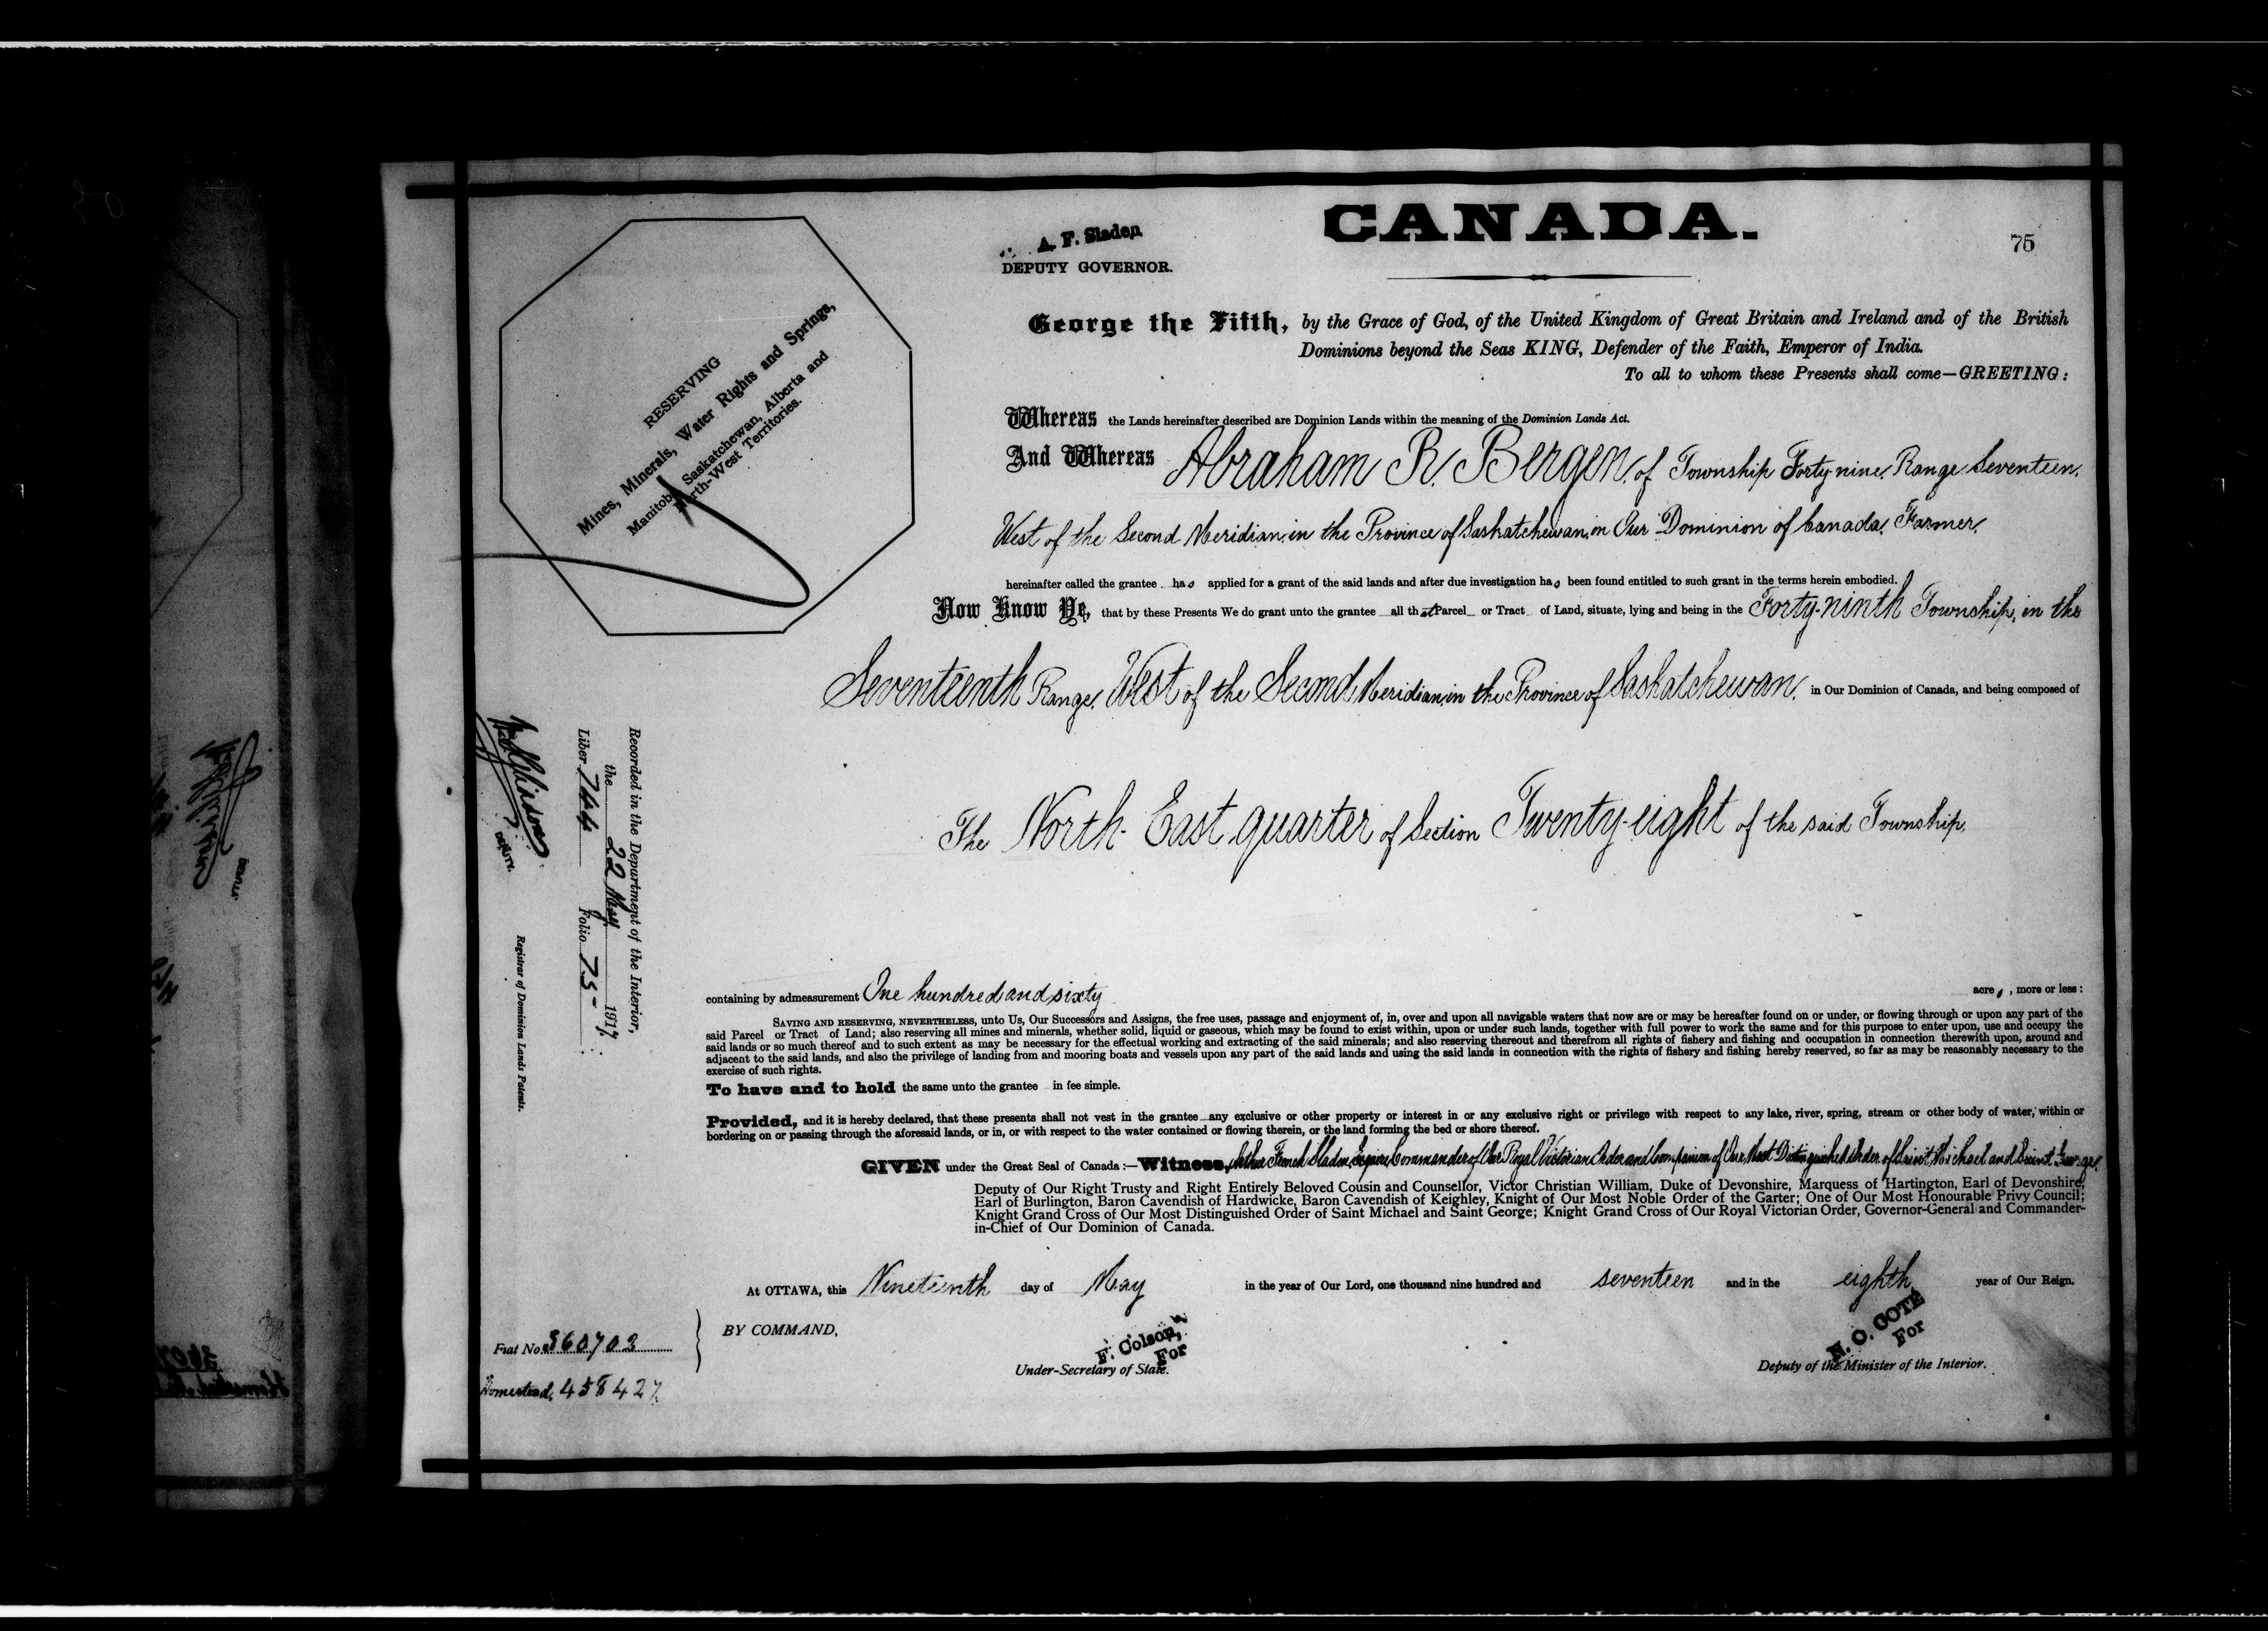 CANADA.
75
A. F. Sladen
DEPUTY GOVERNOR.
George the Fifth, by the Grace of God, of the United Kingdom of Great Britain and Ireland and of the British
Dominions beyond the Seas KING, Defender of the Faith, Emperor of India.
To all to whom these Presents shall come—GREETING:
RESERVING
Mines, Minerals, Water Rights and Springs,
Manitoba, Saskatchewan, Alberta and
North-West Territories.
Whereas the Lands hereinafter described are Dominion Lands within the meaning of the Dominion Lands Act.
And Whereas Abraham R. Bergen, of Township Forty-nine, Range Seventeen,
West of the Second Meridian, in the Province of Saskatchewan, in Our Dominion of Canada, Farmer,
hereinafter called the grantee has applied for a grant of the said lands and after due investigation has been found entitled to such grant in the terms herein embodied.
Now Know Ye, that by these Presents We do grant unto the grantee all that Parcel or Tract of Land, situate, lying and being in the Forty-ninth Township, in the
Seventeenth Range, West of the Second Meridian, in the Province of Saskatchewan, in Our Dominion of Canada, and being composed of
The North-East quarter of Section Twenty-eight of the said Township,
Recorded in the Department of the Interior,
the 22 May 1917
Liber 744 Folio 75
DEPUTY.
Registrar of Dominion Lands Patents.
containing by admeasurement One hundred and sixty acres, more or less:
SAVING AND RESERVING, NEVERTHELESS, unto Us, Our Successors and Assigns, the free uses, passage and enjoyment of, in, over and upon all navigable waters that now are or may be hereafter found on or under, or flowing through or upon any part of the
said Parcel or Tract of Land; also reserving all mines and minerals, whether solid, liquid or gaseous, which may be found to exist within, upon or under such lands, together with full power to work the same and for this purpose to enter upon, use and occupy the
said lands or so much thereof and to such extent as may be necessary for the effectual working and extracting of the said minerals; and also reserving thereout and therefrom all rights of fishery and fishing and occupation in connection therewith upon, around and
adjacent to the said lands, and also the privilege of landing from and mooring boats and vessels upon any part of the said lands and using the said lands in connection with the rights of fishery and fishing hereby reserved, so far as may be reasonably necessary to the
exercise of such rights.
To have and to hold the same unto the grantee in fee simple.
Provided, and it is hereby declared, that these presents shall not vest in the grantee any exclusive or other property or interest in or any exclusive right or privilege with respect to any lake, river, spring, stream or other body of water, within or
bordering on or passing through the aforesaid lands, or in, or with respect to the water contained or flowing therein, or the land forming the bed or shore thereof.
GIVEN under the Great Seal of Canada:—Witness, Arthur French Sladen, Esquire, Commander of Our Royal Victorian Order and Companion of Our Most Distinguished Order of Saint Michael and Saint George,
Deputy of Our Right Trusty and Right Entirely Beloved Cousin and Counsellor, Victor Christian William, Duke of Devonshire, Marquess of Hartington, Earl of Devonshire,
Earl of Burlington, Baron Cavendish of Hardwicke, Baron Cavendish of Keighley, Knight of Our Most Noble Order of the Garter; One of Our Most Honourable Privy Council;
Knight Grand Cross of Our Most Distinguished Order of Saint Michael and Saint George; Knight Grand Cross of Our Royal Victorian Order, Governor-General and Commander-
in-Chief of Our Dominion of Canada.
At OTTAWA, this Nineteenth day of May in the year of Our Lord, one thousand nine hundred and seventeen and in the eighth year of Our Reign.
BY COMMAND,
F. Colson,
For
Under-Secretary of State.
N. O. COTÉ
For
Deputy of the Minister of the Interior.
Fiat No. 360702
Homestead, 458427